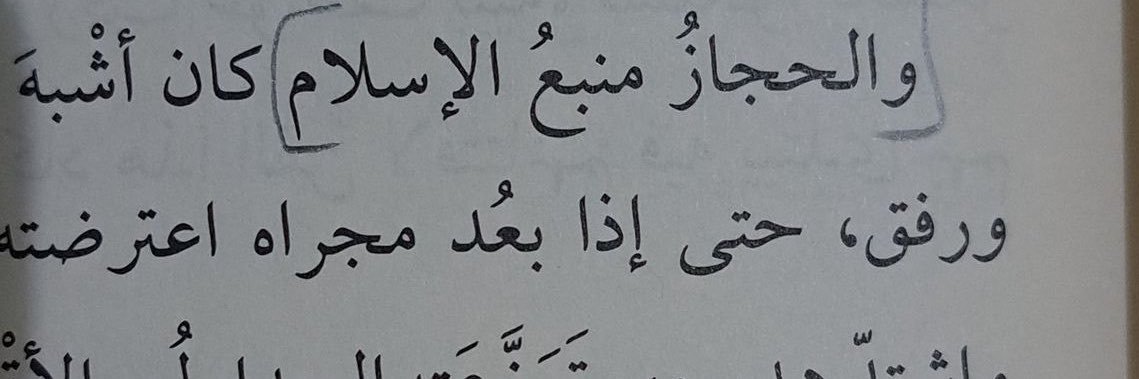 والحجازُ منبعُ الإسلام كان أشْبهَ
ورفق، حتى إذا بعُد مجراه اعترضته